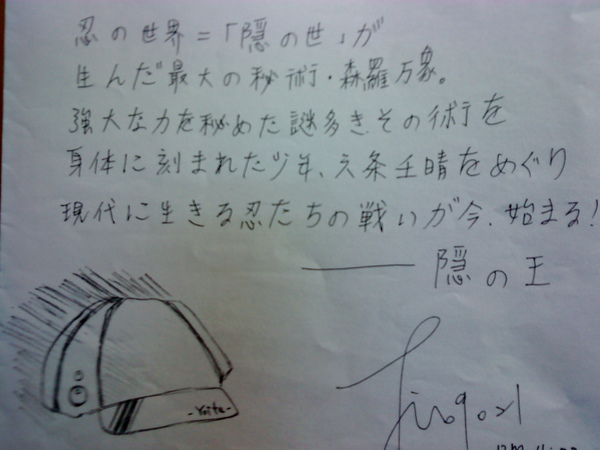 忍の世界=「隠の世」が
生んだ最大の秘術・森羅万象。
強大な力を秘めた謎多きその術を
身体に刻まれた少年、六条壬晴をめぐり
現代に生きる忍たちの戦いが今、始まる!
——隠の王
-Yoite-